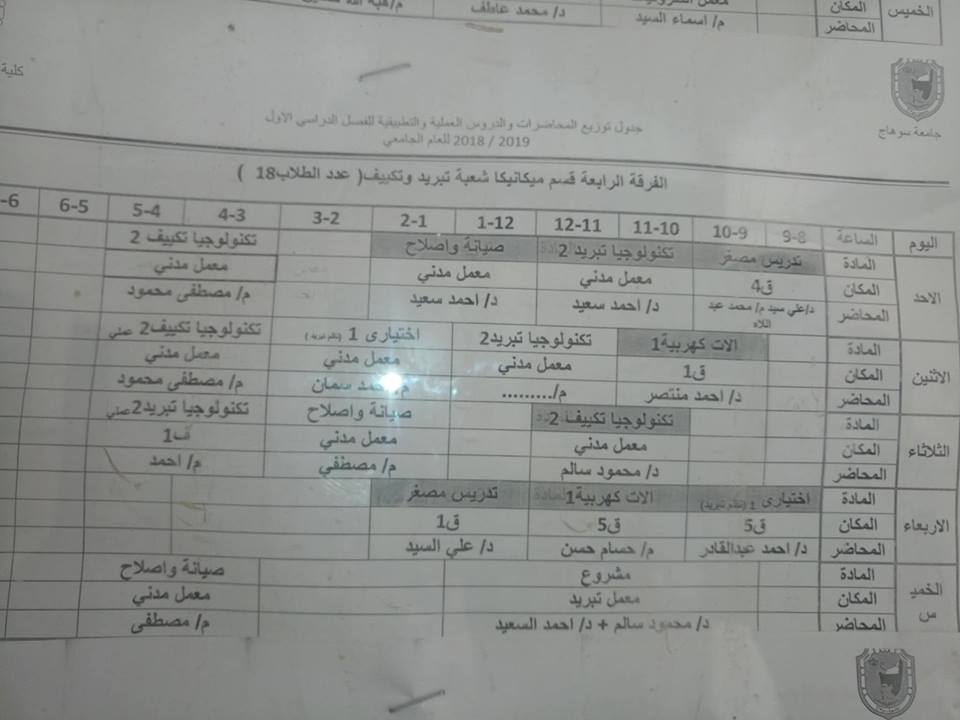 الخميس
المكان
المحاضر
م/ اسماء السيد
د/ محمد عاطف
كلية
جامعة سوهاج
جدول توزيع المحاضرات والدروس العملية والتطبيقية للفصل الدراسي الاول
2018 / 2019 للعام الجامعي
الفرقة الرابعة قسم ميكانيكا شعبة تبريد وتكييف( عدد الطلاب18 )
اليوم الساعة 9-8 10-9 11-10 12-11 1-12 2-1 3-2 4-3 5-4 6-5 -6
الاحد
المادة تدريس مصغر تكنولوجيا تبريد 2 صيانة واصلاح تكنولوجيا تكييف 2
المكان ق4 معمل مدني معمل مدني معمل مدني
المحاضر د/علي سيد م/ محمد عبد اللاه د/ احمد سعيد د/ احمد سعيد م/ مصطفى محمود
الاثنين
المادة الات كهربية1 تكنولوجيا تبريد2 اختيارى 1 (نظم تبريد) تكنولوجيا تكييف2 عملي
المكان ق1 معمل مدني معمل مدني معمل مدني
المحاضر د/ احمد منتصر م/......... سمان م/ مصطفى محمود
الثلاثاء
المادة تكنولوجيا تكييف 2 صيانة واصلاح تكنولوجيا تبريد2 عملي
المكان معمل مدني معمل مدني ف1
المحاضر د/ محمود سالم م/ مصطفي م/ احمد
الاربعاء
المادة اختيارى 1 (نظم تبريد) الات كهربية1 تدريس مصغر
المكان ق5 ق5 ق1
المحاضر د/ احمد عبدالقادر م/ حسام حسن د/ علي السيد
الخميس
المادة مشروع صيانة واصلاح
المكان معمل تبريد معمل مدني
المحاضر د/ محمود سالم + د/ احمد السعيد م/ مصطفى